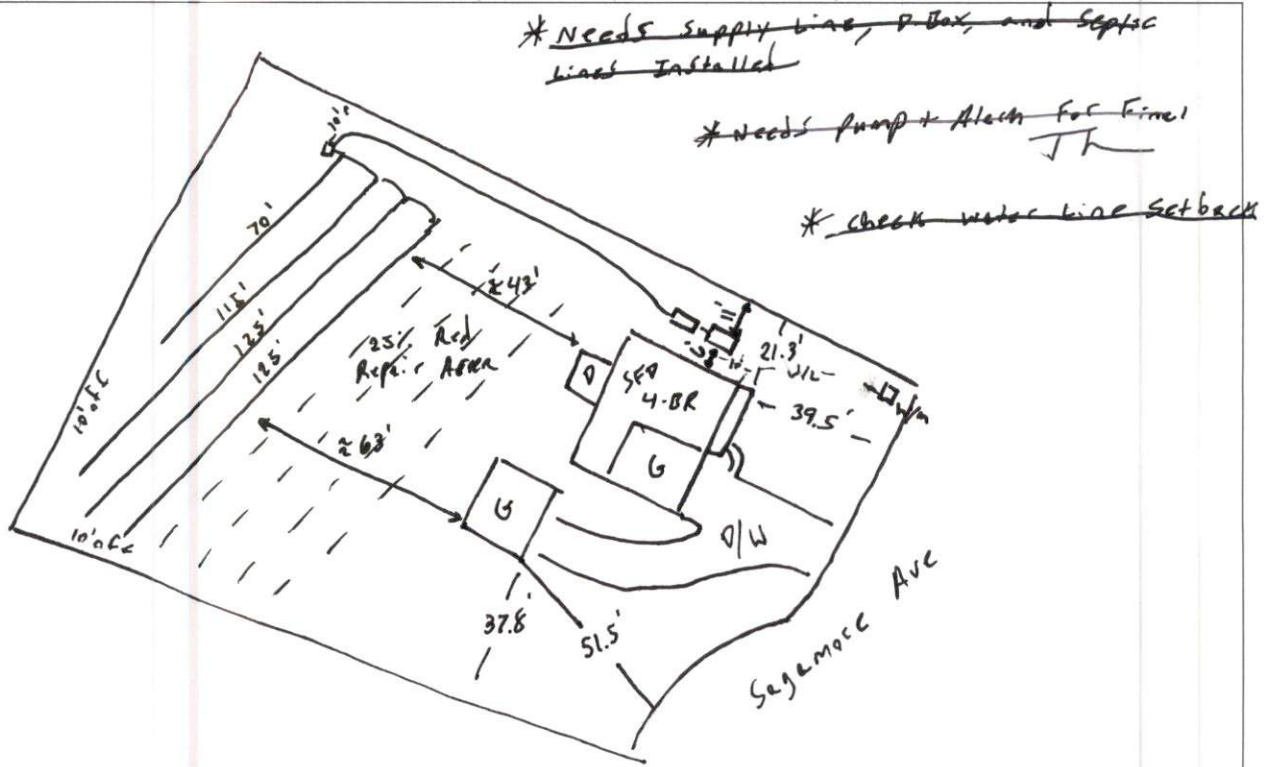 * Needs Supply Line, D-Box, and Septic
Lines Installed
* Needs Pump + Alarm For Final
* Check water Line Setback
10'+
70'
115'
125'
125'
≈43'
25% Red
Repair Area
10' off
≈63'
10' off
D
SFD
4-BR
G
G
11'
21.3'
W/L
W/M
39.5'
D/W
37.8'
51.5'
Sagamore Ave